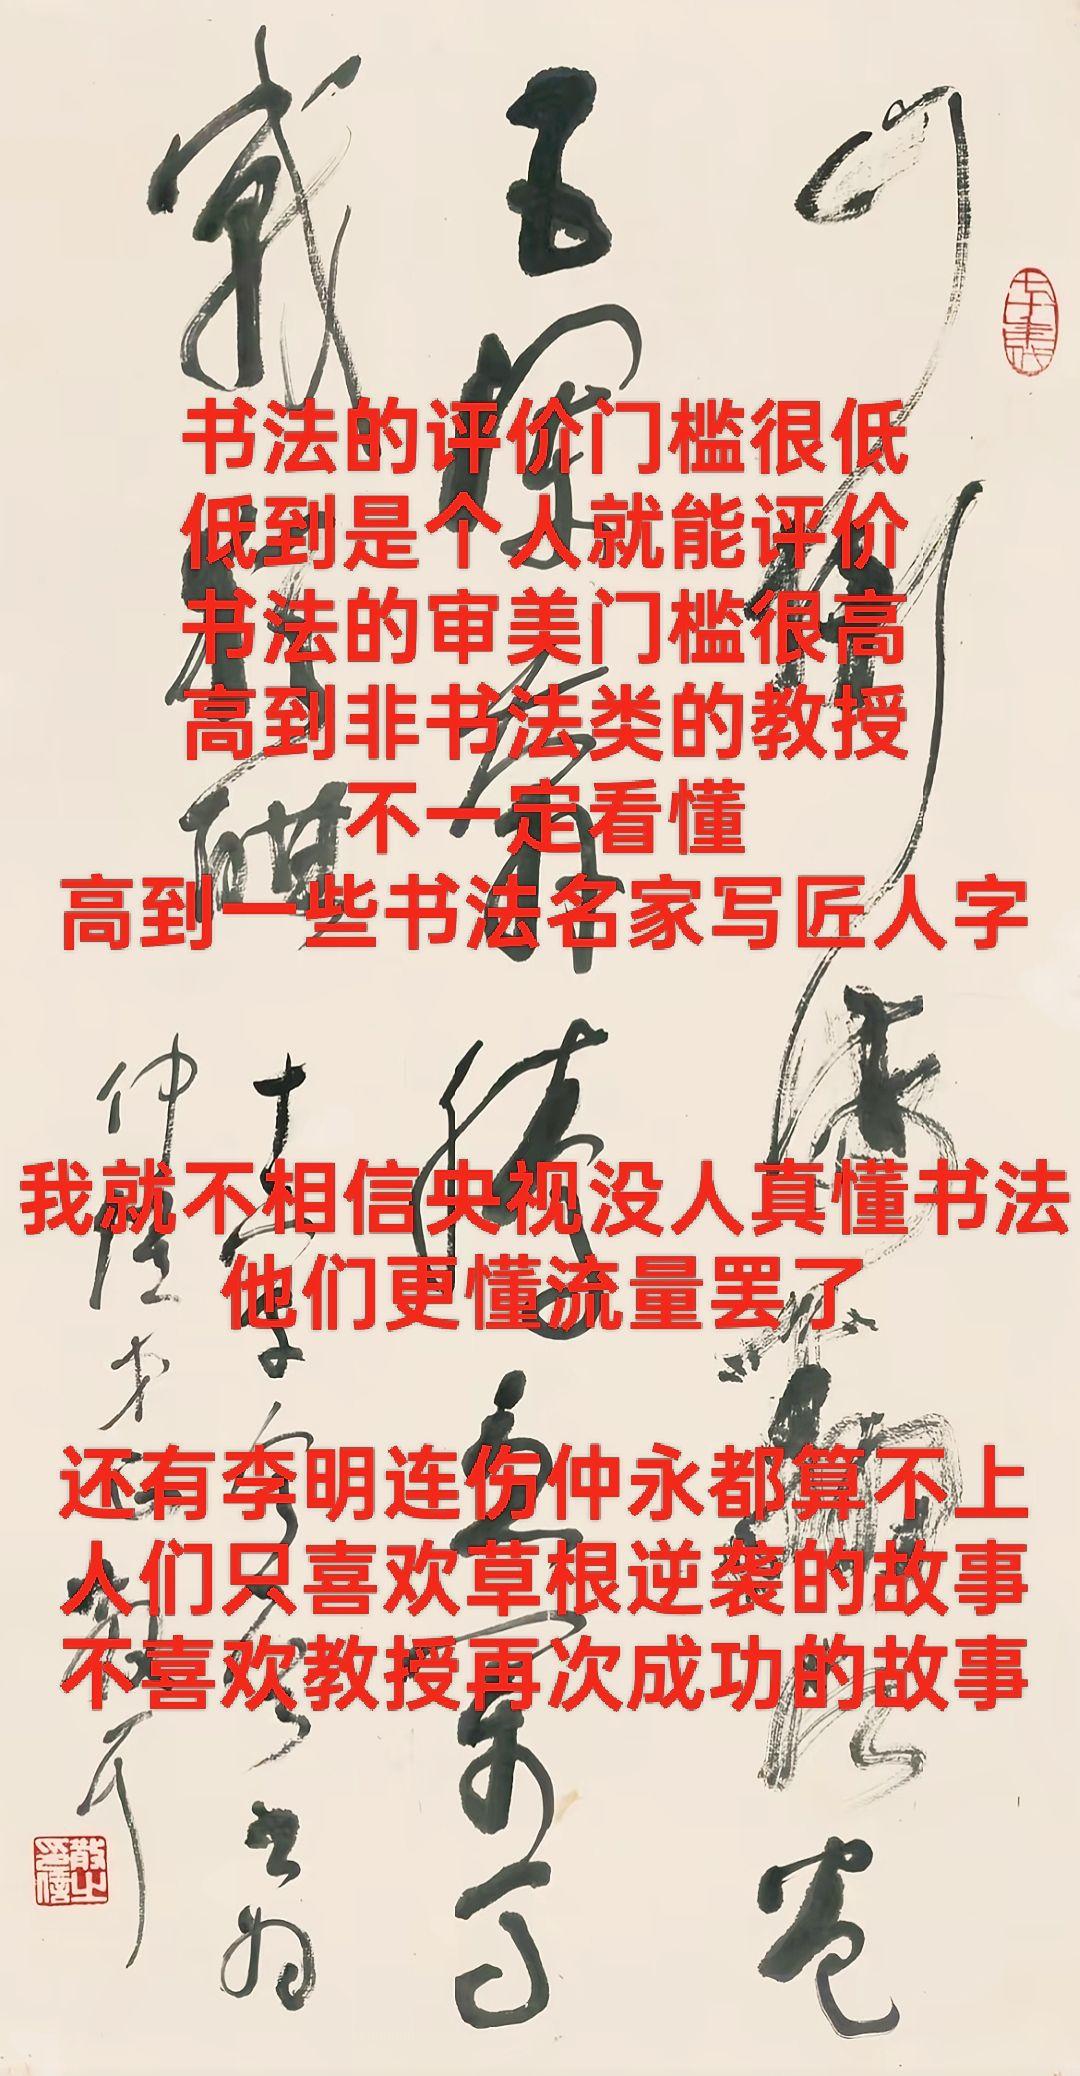 书法的评价门槛很低
低到是个人就能评价
书法的审美门槛很高
高到非书法类的教授
不一定看懂
高到一些书法名家写匠人字
我就不相信央视没人真懂书法
他们更懂流量罢了
还有李明连伤仲永都算不上
人们只喜欢草根逆袭的故事
不喜欢教授再次成功的故事
山倒海翻江卷
巨瀾奔騰急萬馬
戰猶酣